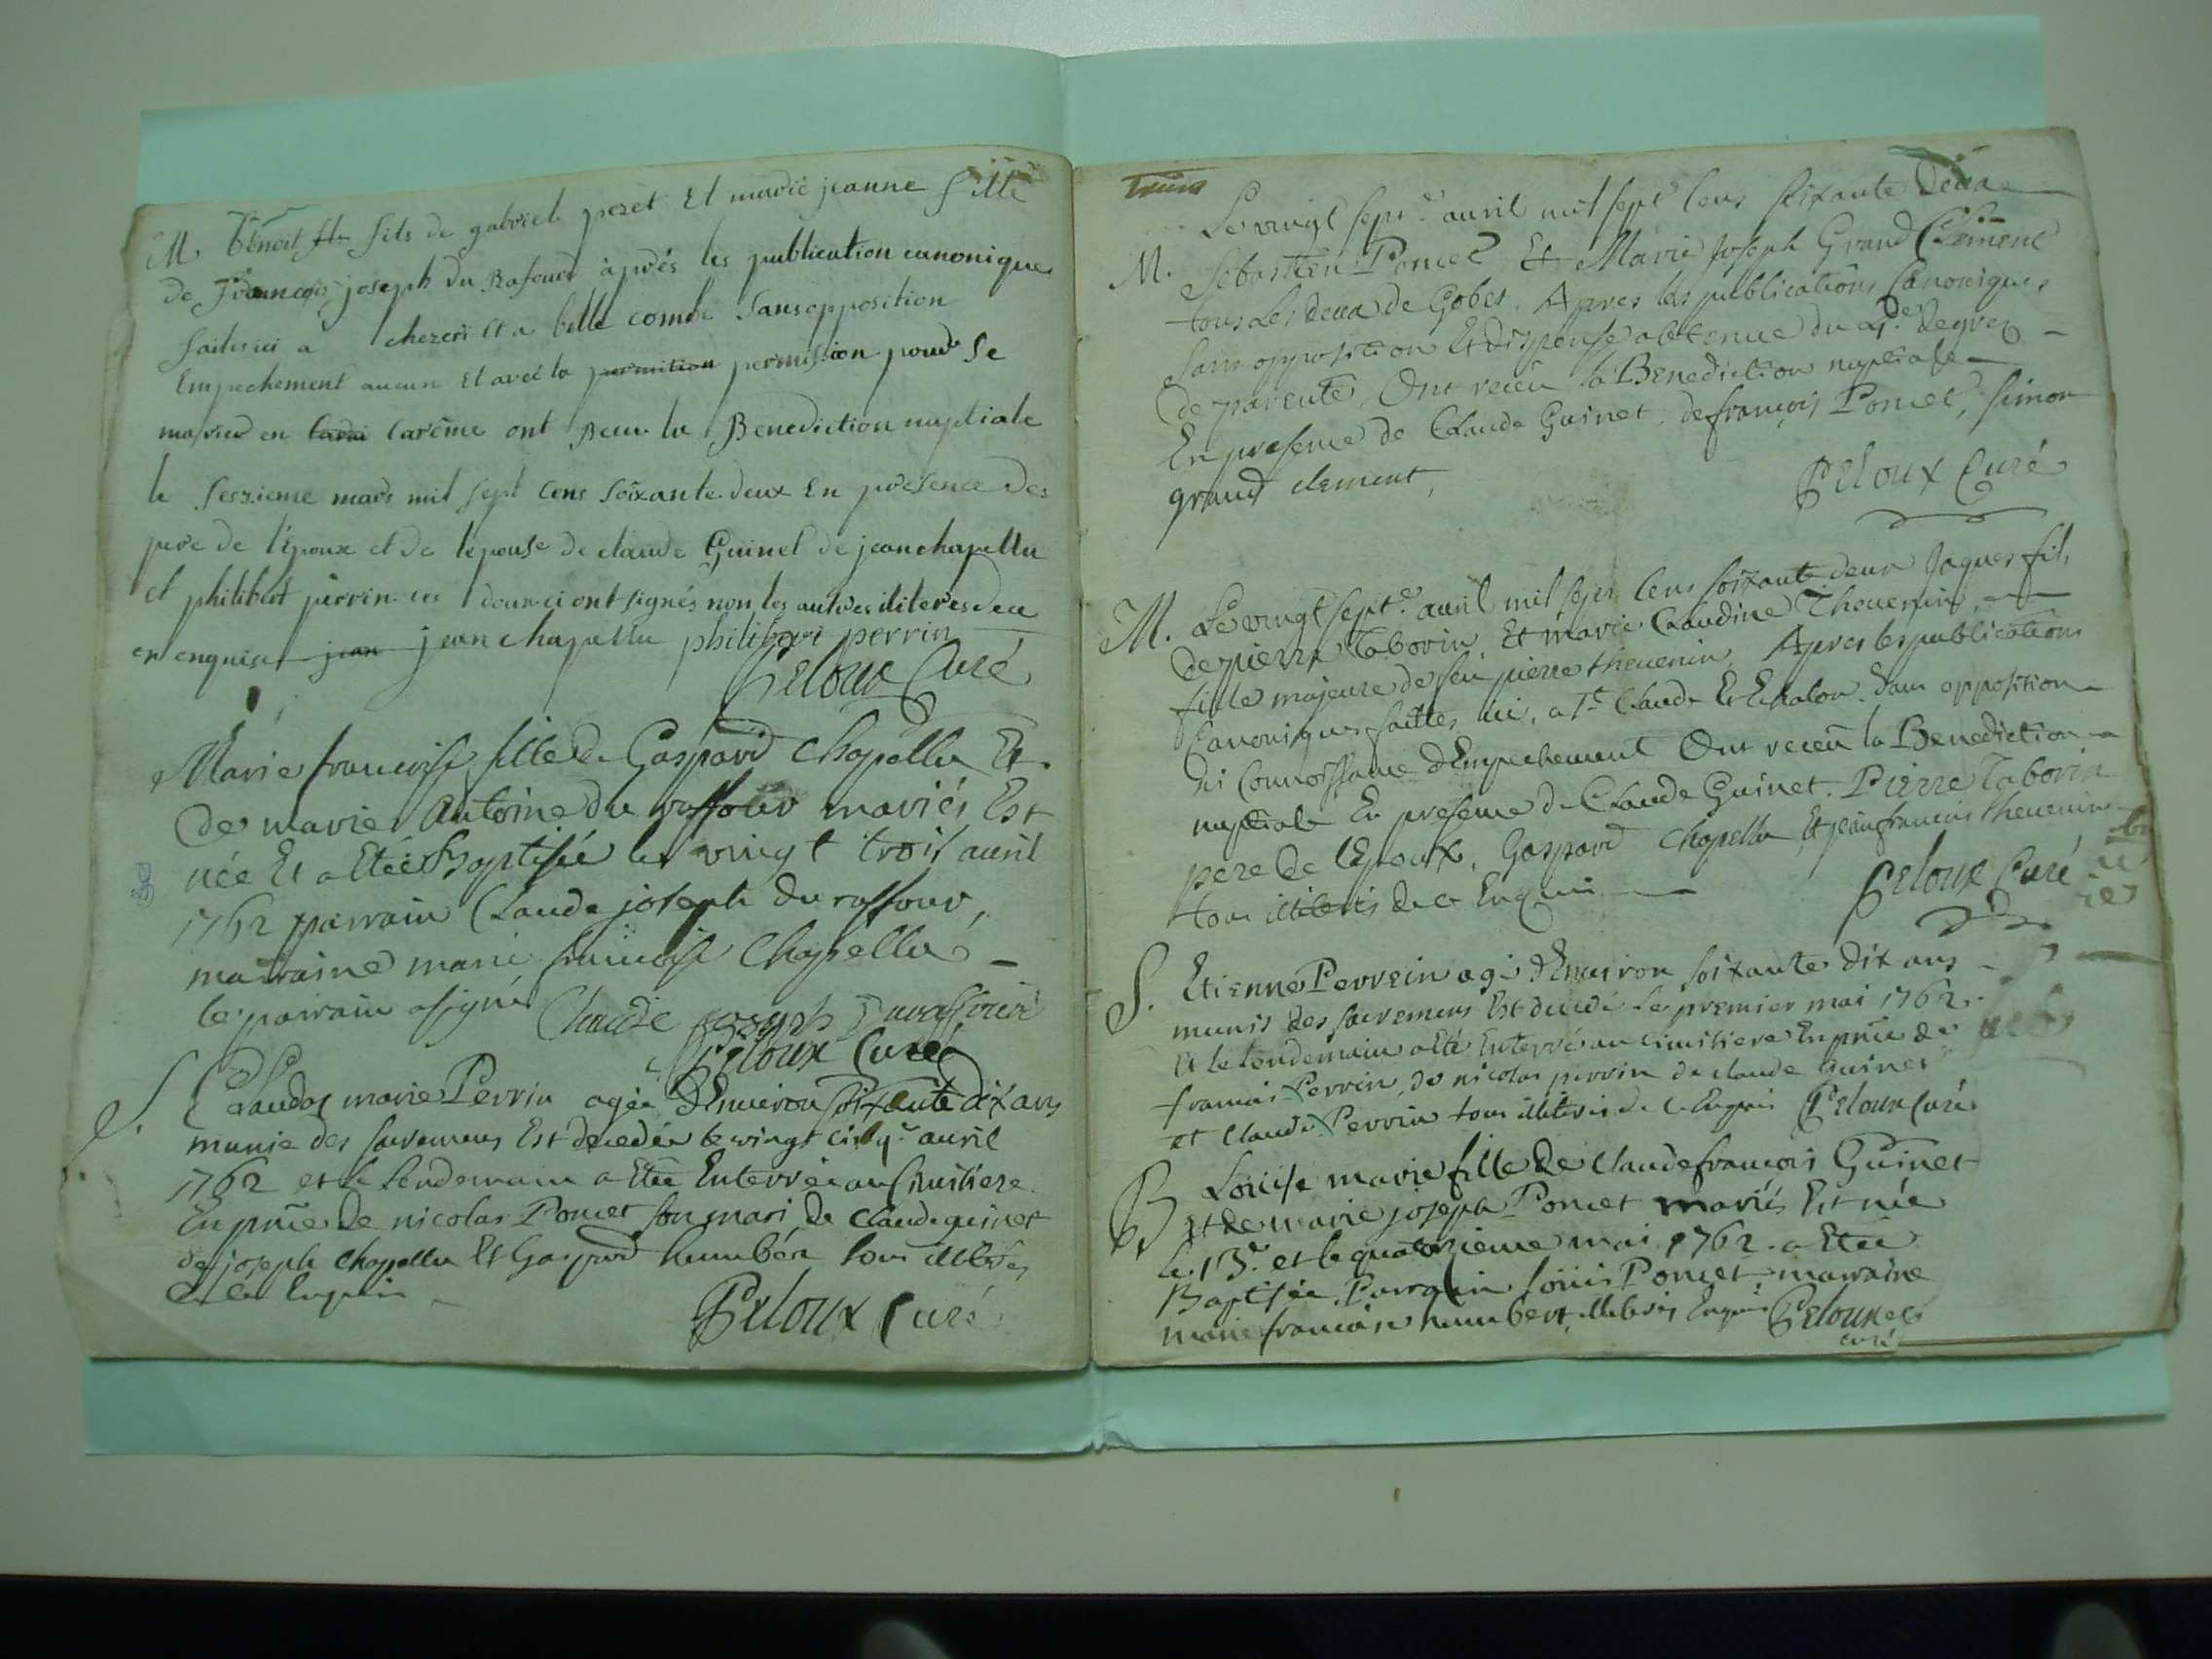 M. Benoit fils de gabriel peret Et marie jeanne fille
de francois joseph du Rafour après les publication canoniques
faites ici a chezeri et a belle combe Sans opposition
Empechement aucun Et avec la permition permission pour Se
marier en carême ont Recu la Benediction nuptiale
le Seszieme mars mil Sept Cens Soixante deux En presence des
pere de l'epoux et de lepouse de claude Guinet de jean chapellu
et philibert perrin ces deux ci ont signés non les autres iliteres de ce
en enquis jean jean chapellu philibert perrin
Peloux Curé
Marie francoise fille de Gaspard Chapellu Et
de marie Antoine du raffour mariés Est
née Et a Etée Baptisée le vingt trois avril
1762 parrain Claude joseph du raffour,
marraine marie francoise Chapellu
le parrain a signé Claude joseph Duraffour
Peloux Curé
S. Claudas marie Perrin agée d'Environ soixante dix ans
munie des sacremens Est decedée le vingt cinq.e avril
1762 et le Lendemain a Etée Enterrée au Cimitiere
En pnce de nicolas Poncet son mari de Claude guinet
de joseph Chapellu Et Gaspard humbert tous illiterés
de ce Enquis
Peloux Curé
Le vingt sept.e avril mil sept Cens soixante Deux
M. Sebastien Poncet Et Marie Joseph Grand Clement
tous Les deux de Gobet. Apres les publications Canoniques
sans opposition Et dispense obtenue du 4.de degrez
de parenté, Ont receu la Benediction nuptiale
En presence de Claude Guinet, de françois Poncet, simon
grand clement,
Peloux Curé
M. Le vingt sept.e avril mil sept Cens soixante deux Jaques fils
de pierre Taborin, Et marie Claudine Thevenin,
fille majeure de feu pierre thevenin, Apres les publications
Canoniques faittes ici, a St Claude Et Echalon. Sans opposition
ni Connoissance d'Empechement Ont receu la Benediction
nuptiale En presence de Claude Guinet. Pierre Taborin
pere de l'Epoux, Gaspard Chapellu Et jean francois thevenin
tous illiterés de ce Enquis
Peloux Curé
S. Etienne Perrein agé d'Environ soixante dix ans
munis des sacremens Est decedé le premier mai 1762.
Et le lendemain a Eté Enterré au cimitiere En pnce de
francois Perrin, de nicolas perrin de claude Guinet
et Claude Perrin tous illiterés de ce Enquis Peloux Curé
B Louise marie fille de Claude francois Guinet
Et de marie joseph Poncet mariés Est née
le 13.e et le quatorzieme mai 1762. a Etée
Baptisée. Parrain Louis Poncet, marraine
marie francoise humbert, illiterés Enquis Peloux
curé